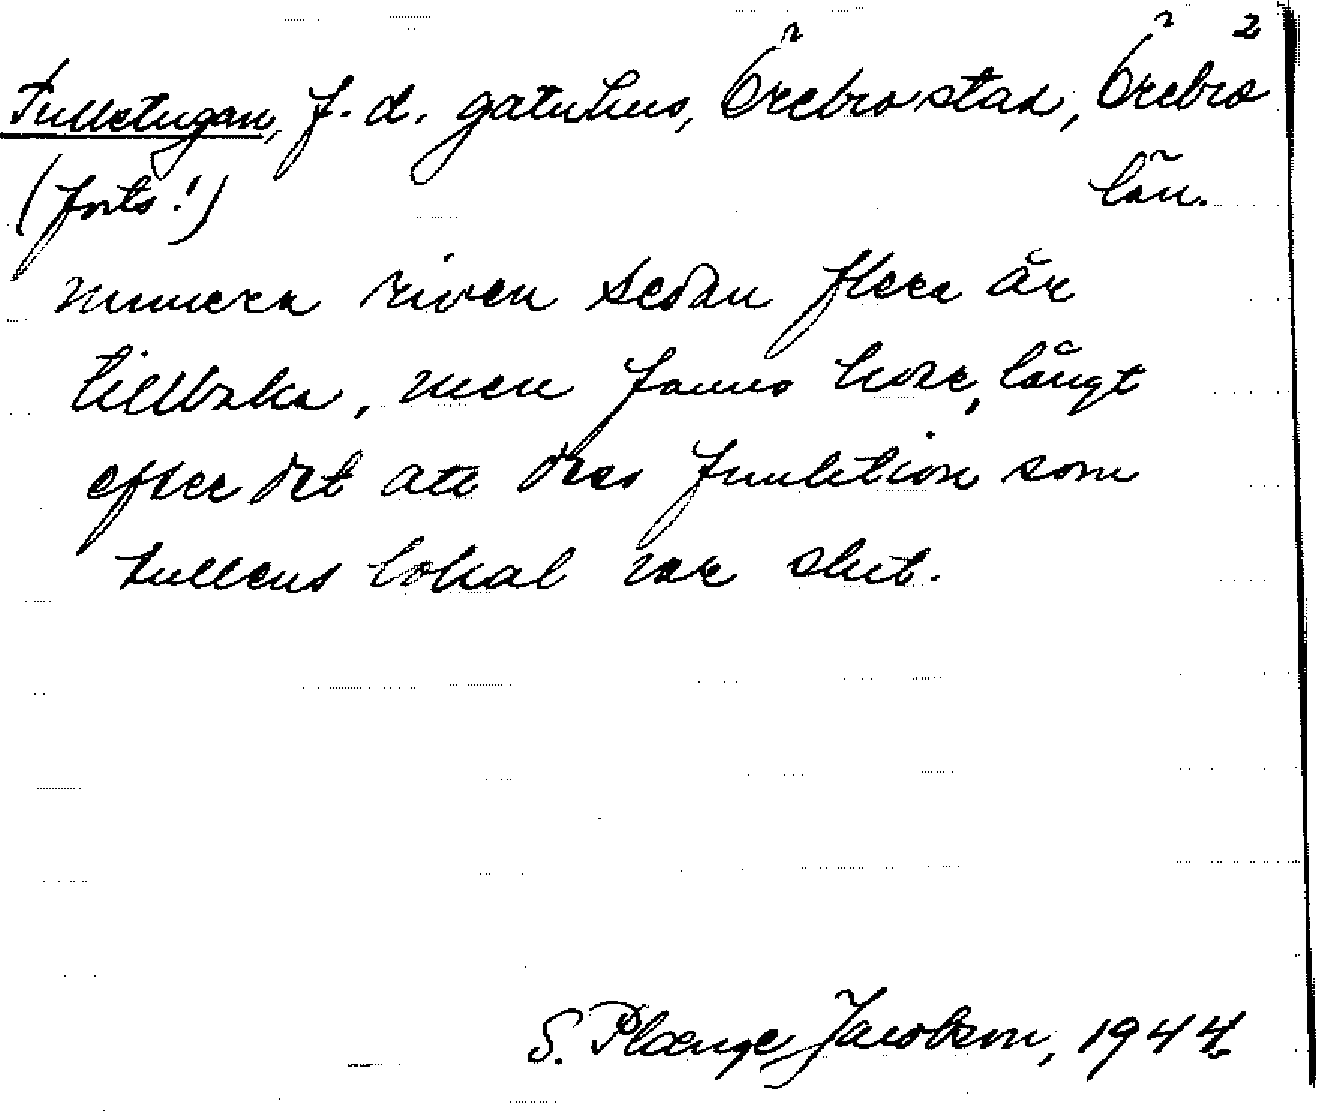 2
Tullstugan, f. d. gatuhus, Örebro stad, Örebro
(forts!) län.
numera riven sedan flera år
tillbaka, men fanns kvar, långt
efter det att dess funktion som
tullens lokal var slut.
S. Plænge Jacobson, 1944.